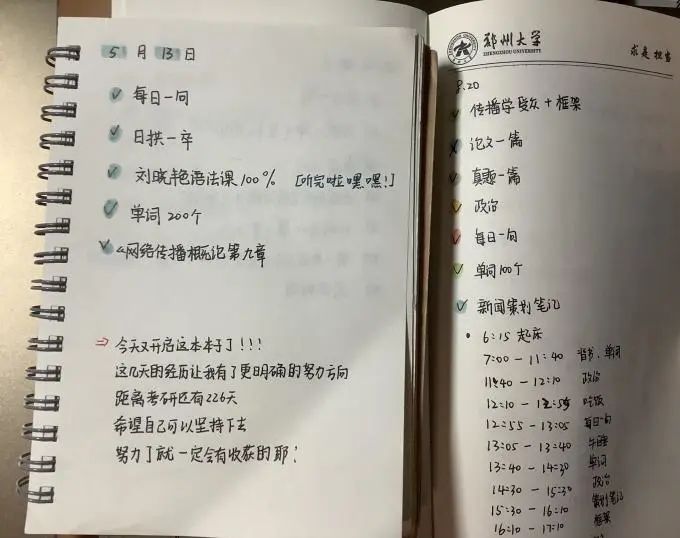 5月13日
每日一句
日拱一卒
刘晓艳语法课100% [听完啦嘿嘿!]
单词200个
《网络传播概论》第九章
⇒ 今天又开启这本本子了!!!
这几天的经历让我有了更明确的努力方向
距离考研还有226天
希望自己可以坚持下去
努力了就一定会有收获的耶!
郑州大学
ZHENGZHOU UNIVERSITY
求是 担当
8.20
传播学受众+框架
论文一篇
真题一篇
政治
每日一句
单词100个
新闻策划笔记
• 6:15 起床
7:00-11:40 背书、单词
11:40-12:10 政治
12:10-12:55 吃饭
12:55-13:05 每日一句
13:05-13:40 午睡
13:40-14:30 单词
14:30-15:30 政治
15:30-16:10 策划笔记
16:10-17:10 框架